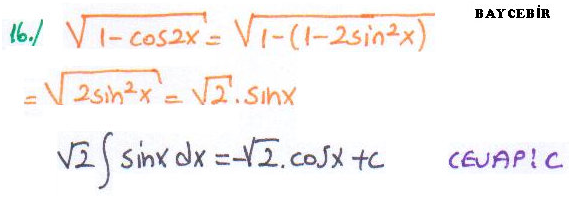 BAYCEBİR
16./ √1-cos2x = √1-(1-2sin²x)
= √2sin²x = √2.sinx
√2 ∫ sinx dx = -√2.cosx + c CEVAP: C